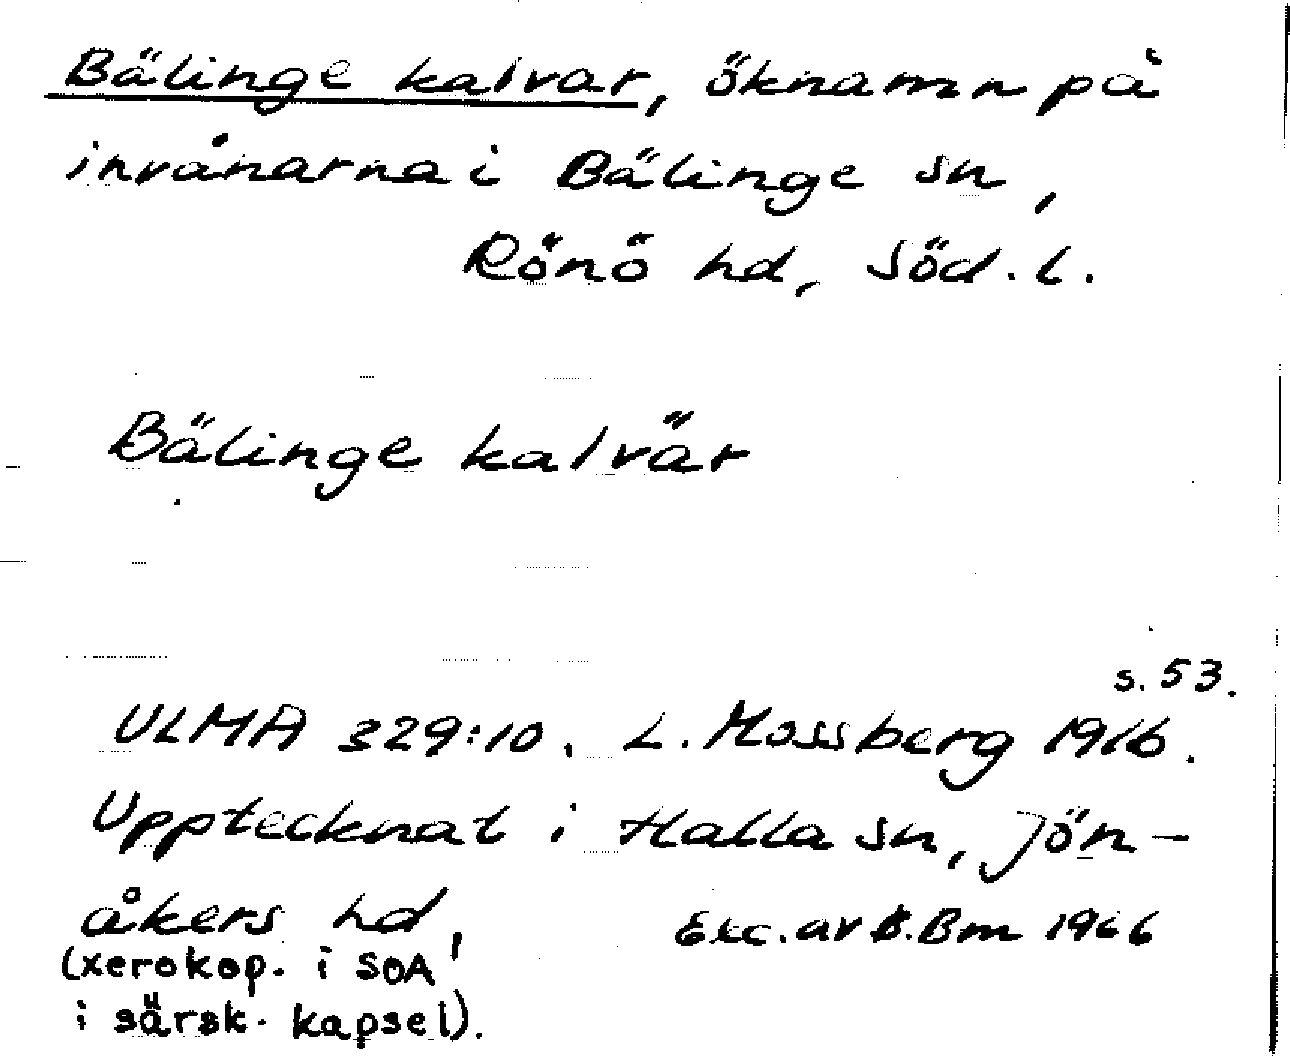 Bälinge kalvar, öknamn på
invånarna i Bälinge sn,
Rönö hd, Söd. l.
Bälinge kalvär
s. 53.
ULMA 329:10. L. Mossberg 1916.
Upptecknat i Halla sn, Jön-
åkers hd,
Exc. av B. Bm 1966
(xerokop. i SOA
i särsk. kapsel).